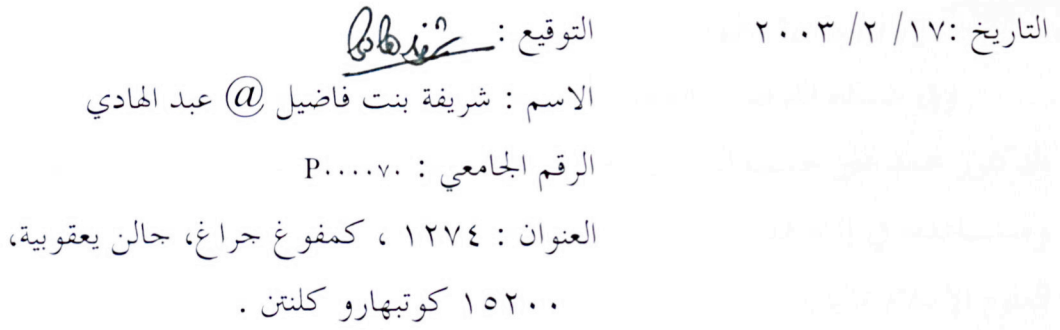 التاريخ :١٧/ ٢/ ٢٠٠٣ التوقيع :
الاسم : شريفة بنت فاضيل @ عبد الهادي
الرقم الجامعي : P٠٠٠٠٧٠
العنوان : ١٢٧٤ ، كمفوغ جراغ، جالن يعقوبية،
١٥٢٠٠ كوتبهارو كلنتن .